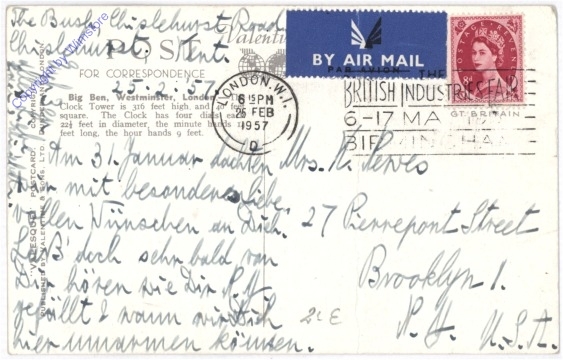 The Bush, Chislehurst Road
Chislehurst. Kent.
POST
Valentine
FOR CORRESPONDENCE
25.2.57
Big Ben, Westminster, London
Clock Tower is 316 feet high and
square. The Clock has four dials each
22½ feet in diameter, the minute hands
feet long, the hour hands 9 feet.
BY AIR MAIL
PAR AVION
LONDON. W.1
6 15 PM
26 FEB
1957
D
THE
BRITISH INDUSTRIES FAIR
6-17 MA
BIRMINGHAM
POSTAGE REVENUE
8d
GT. BRITAIN
Am 31. Januar dachten
wir mit besonderer Liebe
vollen Wünschen an Dich.
doch sehr bald von
Dir hören wie Dir N.Y.
gefällt & wann wir Dich
hier umarmen können.
Mrs. K.
27 Pierrepont Street
Brooklyn 1.
N.Y. U.S.A.
"VALESQUE" POSTCARD.
PUBLISHED BY VALENTINE & SONS, LTD.
Copyright by Wimstore